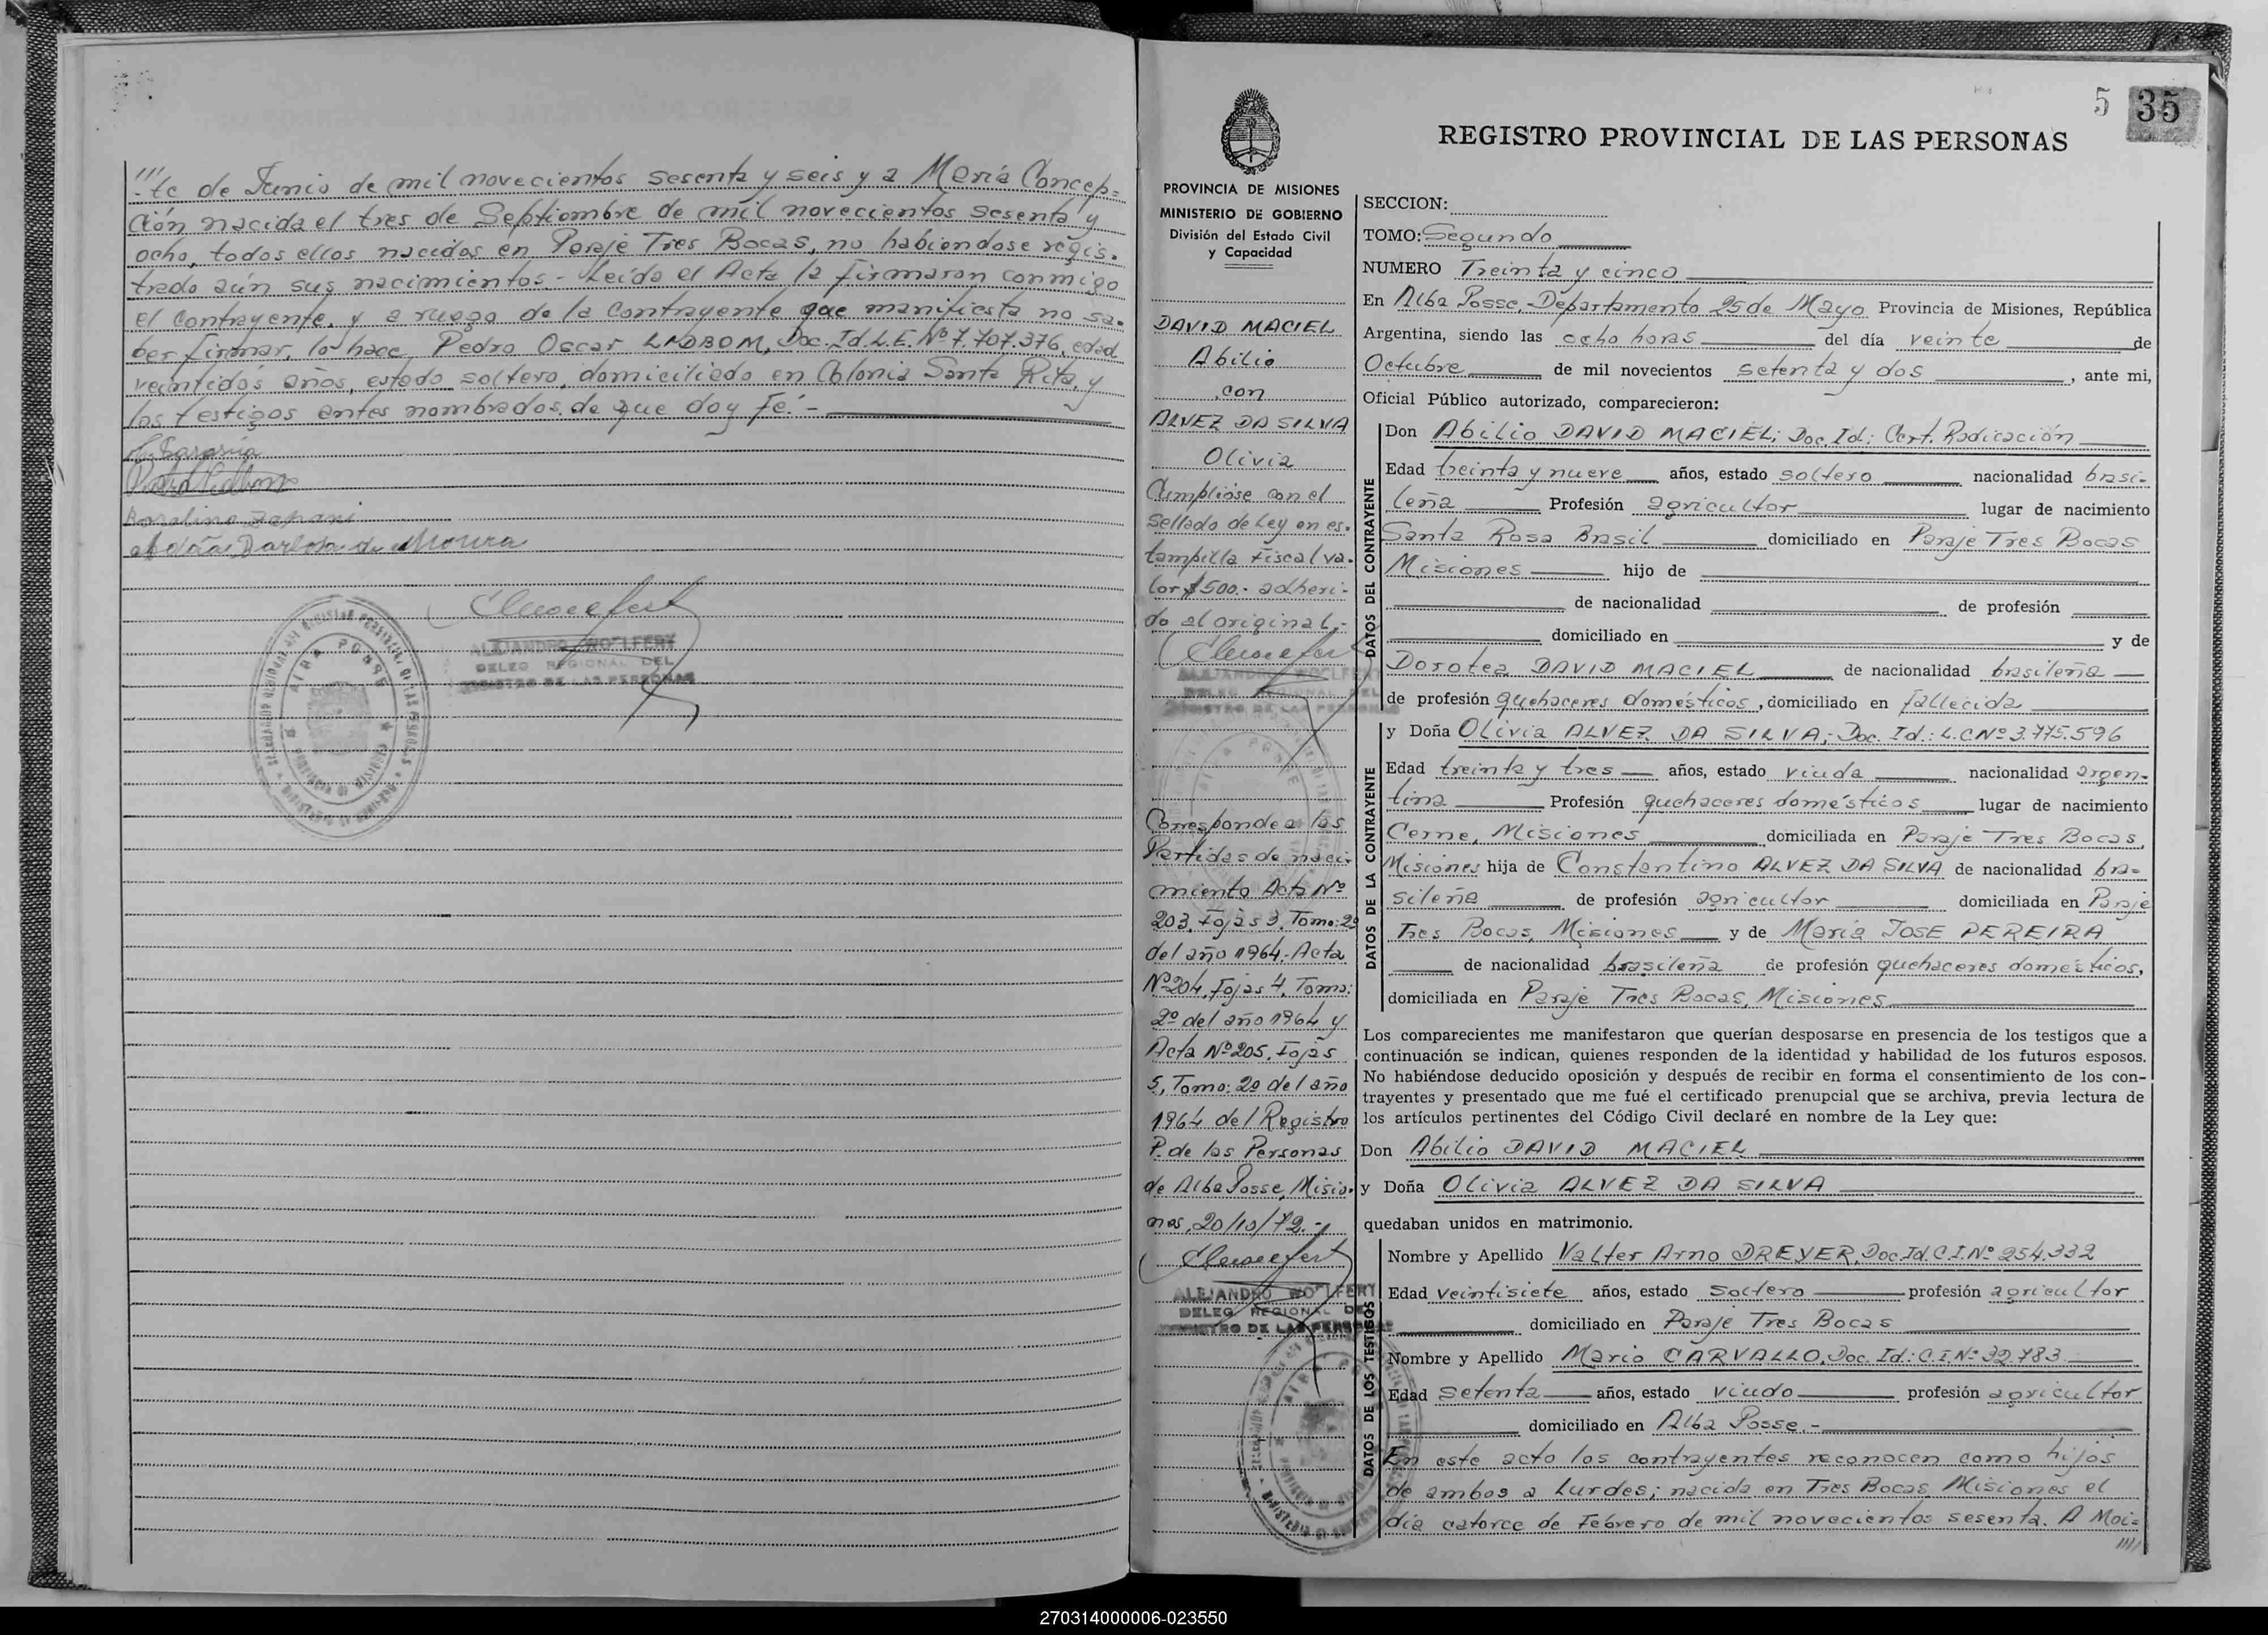 ///te de Junio de mil novecientos sesenta y seis y a María Concep=
ción nacida el tres de Septiembre de mil novecientos sesenta y
ocho, todos ellos nacidos en Paraje Tres Bocas, no habiendose regis-
trado aún sus nacimientos.- Leída el Acta la firmaron conmigo
el contrayente, y a ruego de la contrayente que manifiesta no sa-
ber firmar, lo hace Pedro Oscar LADBOM, Doc. Id. L.E. Nº 7.707.376, edad
veintidós años, estado soltero, domiciliado en Colonia Santa Rita, y
los testigos antes nombrados de que doy fé.-
ALEJANDRO WOLFERT
DELEG REGIONAL DEL
REGISTRO DE LAS PERSONAS
5 35
REGISTRO PROVINCIAL DE LAS PERSONAS
PROVINCIA DE MISIONES
MINISTERIO DE GOBIERNO
División del Estado Civil
y Capacidad
DAVID MACIEL
Abilio
con
ALVEZ DA SILVA
Olivia
Cumplióse con el
sellado de Ley en es-
tampilla fiscal va-
lor $500.- adheri-
do al original.-
ALEJANDRO WOLFERT
DELEG REGIONAL DEL
REGISTRO DE LAS PERSONAS
Corresponde a las
Partidas de naci-
miento Acta Nº
203, Fojas 3, Tomo: 2º
del año 1964.- Acta
Nº 204, Fojas 4, Tomo:
2º del año 1964 y
Acta Nº 205, Fojas
5, Tomo: 2º del año
1964 del Registro
P. de las Personas
de Alba Posse, Misio-
nes, 20/10/72.-
ALEJANDRO WOLFERT
DELEG REGIONAL DEL
REGISTRO DE LAS PERSONAS
SECCION:
TOMO: Segundo
NUMERO Treinta y cinco
En Alba Posse,- Departamento 25 de Mayo Provincia de Misiones, República
Argentina, siendo las ocho horas del día veinte de
Octubre de mil novecientos setenta y dos , ante mi,
Oficial Público autorizado, comparecieron:
DATOS DEL CONTRAYENTE
Don Abilio DAVID MACIEL; Doc. Id.: Cert. Radicación
Edad treinta y nueve años, estado soltero nacionalidad brasi-
leña Profesión agricultor lugar de nacimiento
Santa Rosa Brasil domiciliado en Paraje Tres Bocas
Misiones hijo de
de nacionalidad de profesión
domiciliado en y de
Dorotea DAVID MACIEL de nacionalidad brasileña
de profesión quehaceres domésticos, domiciliado en fallecida
DATOS DE LA CONTRAYENTE
y Doña Olivia ALVEZ DA SILVA,- Doc. Id.: L.C Nº 3.775.596
Edad treinta y tres años, estado viuda nacionalidad argen-
tina Profesión quehaceres domésticos lugar de nacimiento
Cerne, Misiones domiciliada en Paraje Tres Bocas,
Misiones hija de Constantino ALVEZ DA SILVA de nacionalidad bra-
sileña de profesión agricultor domiciliada en Paraje
Tres Bocas, Misiones y de María JOSE PEREIRA
de nacionalidad brasileña de profesión quehaceres domésticos,
domiciliada en Paraje Tres Bocas, Misiones
Los comparecientes me manifestaron que querían desposarse en presencia de los testigos que a
continuación se indican, quienes responden de la identidad y habilidad de los futuros esposos.
No habiéndose deducido oposición y después de recibir en forma el consentimiento de los con-
trayentes y presentado que me fué el certificado prenupcial que se archiva, previa lectura de
los artículos pertinentes del Código Civil declaré en nombre de la Ley que:
Don Abilio DAVID MACIEL
y Doña Olivia ALVEZ DA SILVA
quedaban unidos en matrimonio.
DATOS DE LOS TESTIGOS
Nombre y Apellido Valter Arno DREYER, Doc. Id. C.I. Nº 254.332
Edad veintisiete años, estado soltero profesión agricultor
domiciliado en Paraje Tres Bocas
Nombre y Apellido Mario CARVALLO, Doc. Id.: C.I. Nº 32.783
Edad setenta años, estado viudo profesión agricultor
domiciliado en Alba Posse.-
En este acto los contrayentes reconocen como hijos
de ambos a Lurdes; nacida en Tres Bocas Misiones el
día catorce de Febrero de mil novecientos sesenta. A Moi=
////
270314000006-023550